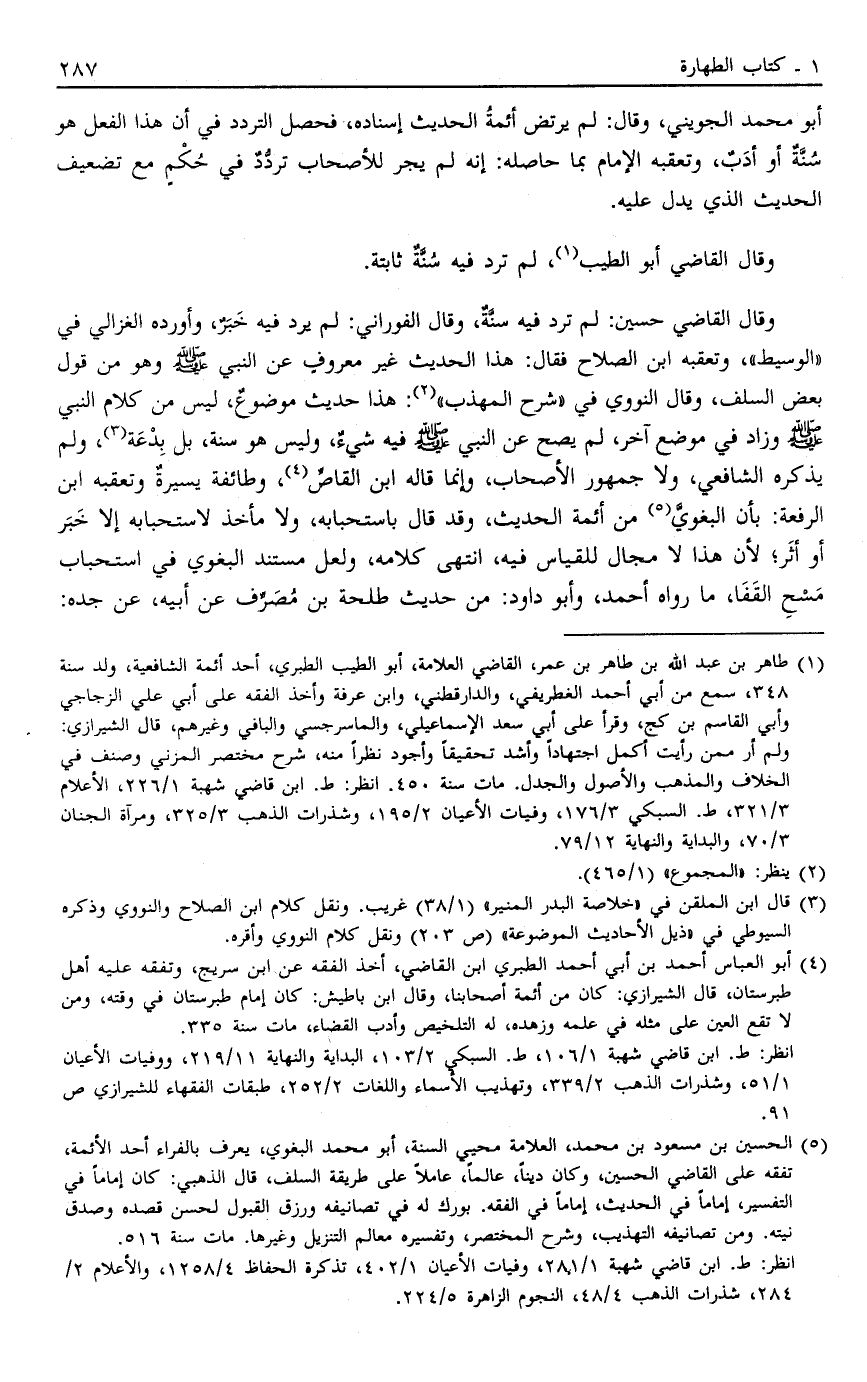 ١ ـ كتاب الطهارة ٢٨٧
أبو محمد الجويني، وقال: لم يرتض أئمةُ الحديث إسناده، فحصل التردد في أن هذا الفعل هو
سُنَّةٌ أو أدَبٌ، وتعقبه الإمام بما حاصله: إنه لم يجر للأصحاب تردُّدٌ في حُكْمٍ مع تضعيف
الحديث الذي يدل عليه.
وقال القاضي أبو الطيب(١)، لم ترد فيه سُنَّةٌ ثابتة.
وقال القاضي حسين: لم ترد فيه سنَّةٌ، وقال الفوراني: لم يرد فيه خَبَرٌ، وأورده الغزالي في
«الوسيط»، وتعقبه ابن الصلاح فقال: هذا الحديث غير معروفٍ عن النبي ﷺ وهو من قول
بعض السلف، وقال النووي في «شرح المهذب»(٢): هذا حديث موضوعٌ، ليس من كلام النبي
ﷺ وزاد في موضع آخر، لم يصح عن النبي ﷺ فيه شيءٌ، وليس هو سنة، بل بِدْعَة(٣)، ولم
يذكره الشافعي، ولا جمهور الأصحاب، وإنما قاله ابن القاصِّ(٤)، وطائفة يسيرةٌ وتعقبه ابن
الرفعة: بأن البغويَّ(٥) من أئمة الحديث، وقد قال باستحبابه، ولا مأخذ لاستحبابه إلا خَبَر
أو أثَر؛ لأن هذا لا مجال للقياس فيه، انتهى كلامه، ولعل مستند البغوي في استحباب
مَسْحِ القَفَا، ما رواه أحمد، وأبو داود: من حديث طلحة بن مُصَرِّف عن أبيه، عن جده:
(١) طاهر بن عبد الله بن طاهر بن عمر، القاضي العلامة، أبو الطيب الطبري، أحد أئمة الشافعية، ولد سنة
٣٤٨، سمع من أبي أحمد الغطريفي، والدارقطني، وابن عرفة وأخذ الفقه على أبي علي الزجاجي
وأبي القاسم بن كج، وقرأ على أبي سعد الإسماعيلي، والماسرجسي والبافي وغيرهم، قال الشيرازي:
ولم أر ممن رأيت أكمل اجتهاداً وأشد تحقيقاً وأجود نظراً منه، شرح مختصر المزني وصنف في
الخلاف والمذهب والأصول والجدل. مات سنة ٤٥٠. انظر: ط. ابن قاضي شهبة ٢٢٦/١، الأعلام
٣٢١/٣، ط. السبكي ١٧٦/٣، وفيات الأعيان ١٩٥/٢، وشذرات الذهب ٣٢٥/٣، ومرآة الجنان
٧٠/٣، والبداية والنهاية ٧٩/١٢.
(٢) ينظر: «المجموع» (٤٦٥/١).
(٣) قال ابن الملقن في «خلاصة البدر المنير» (٣٨/١) غريب. ونقل كلام ابن الصلاح والنووي وذكره
السيوطي في «ذيل الأحاديث الموضوعة» (ص ٢٠٣) ونقل كلام النووي وأقره.
(٤) أبو العباس أحمد بن أبي أحمد الطبري ابن القاضي، أخذ الفقه عن ابن سريج، وتفقه عليه أهل
طبرستان، قال الشيرازي: كان من أئمة أصحابنا، وقال ابن باطيش: كان إمام طبرستان في وقته، ومن
لا تقع العين على مثله في علمه وزهده، له التلخيص وأدب القضاء، مات سنة ٣٣٥.
انظر: ط. ابن قاضي شهبة ١٠٦/١، ط. السبكي ١٠٣/٢، البداية والنهاية ٢١٩/١١، ووفيات الأعيان
٥١/١، وشذرات الذهب ٣٣٩/٢، وتهذيب الأسماء واللغات ٢٥٢/٢، طبقات الفقهاء للشيرازي ص
٩١.
(٥) الحسين بن مسعود بن محمد، العلامة محيي السنة، أبو محمد البغوي، يعرف بالفراء أحد الأئمة،
تفقه على القاضي الحسين، وكان ديناً، عالماً، عاملاً على طريقة السلف، قال الذهبي: كان إماماً في
التفسير، إماماً في الحديث، إماماً في الفقه. بورك له في تصانيفه ورزق القبول لحسن قصده وصدق
نيته. ومن تصانيفه التهذيب، وشرح المختصر، وتفسيره معالم التنزيل وغيرها. مات سنة ٥١٦.
انظر: ط. ابن قاضي شهبة ٢٨١/١، وفيات الأعيان ٤٠٢/١، تذكرة الحفاظ ١٢٥٨/٤، والأعلام ٢/
٢٨٤، شذرات الذهب ٤٨/٤، النجوم الزاهرة ٢٢٤/٥.